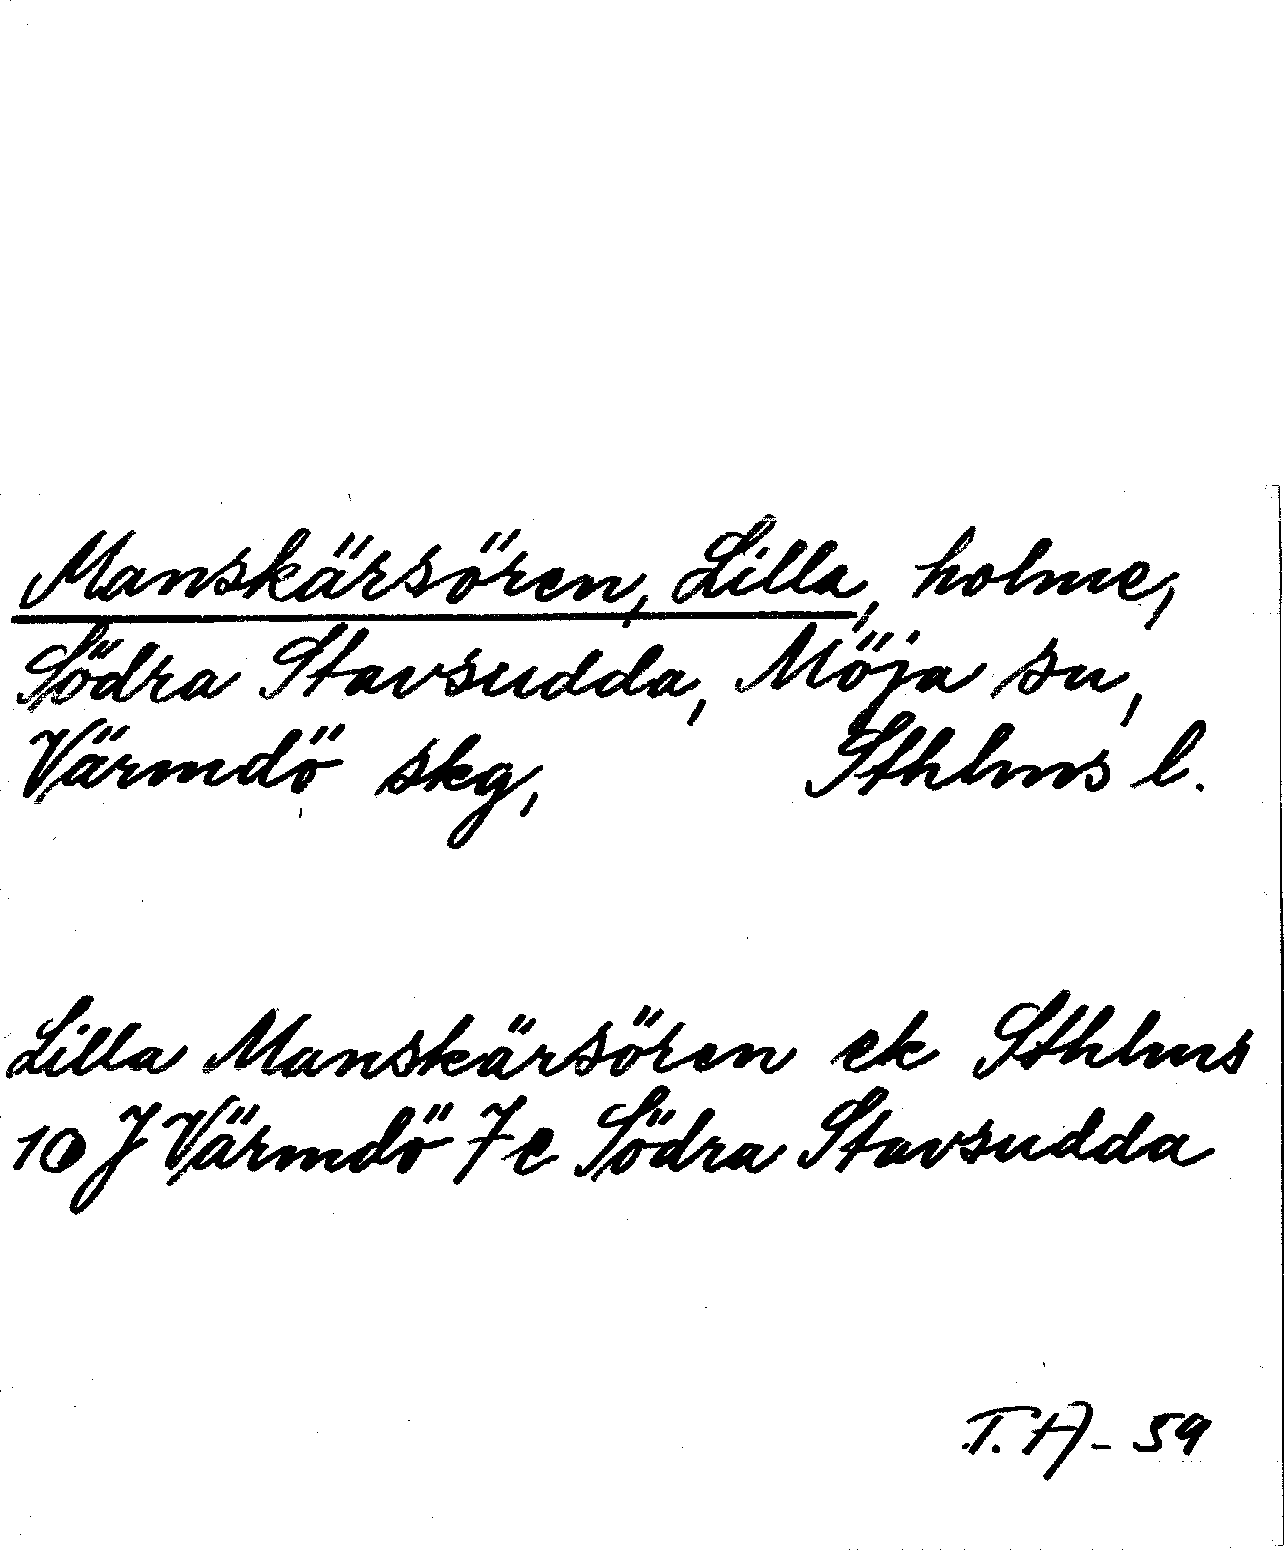 Manskärsören, Lilla, holme,
Södra Stavsudda, Möja sn,
Värmdö skg, Sthlms l.
Lilla Manskärsören ek Sthlms
10 J Värmdö 7 c Södra Stavsudda
T. H - 59